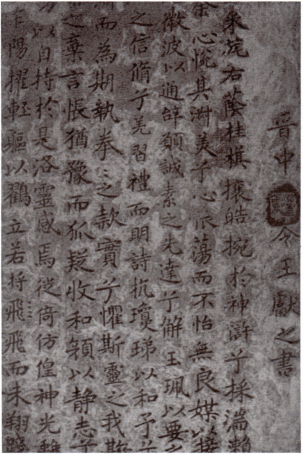 晉中令王獻之書
采旄右蔭桂棋攘皓捥於神滸兮採湍瀨
心悅其淑美兮心振蕩而不怡無良媒以接
微波以通辭願誠素之先達兮解玉珮以要之
之信脩兮羌習禮而明詩抗瓊珶以和予兮
而為期執拳之款實兮懼斯靈之我斯
之棄言悵猶豫而狐疑收和顏以静志兮
以自持於是洛靈感焉徙倚仿偟神光離
乍陽擢輕軀以鶴立若將飛飛而未翔